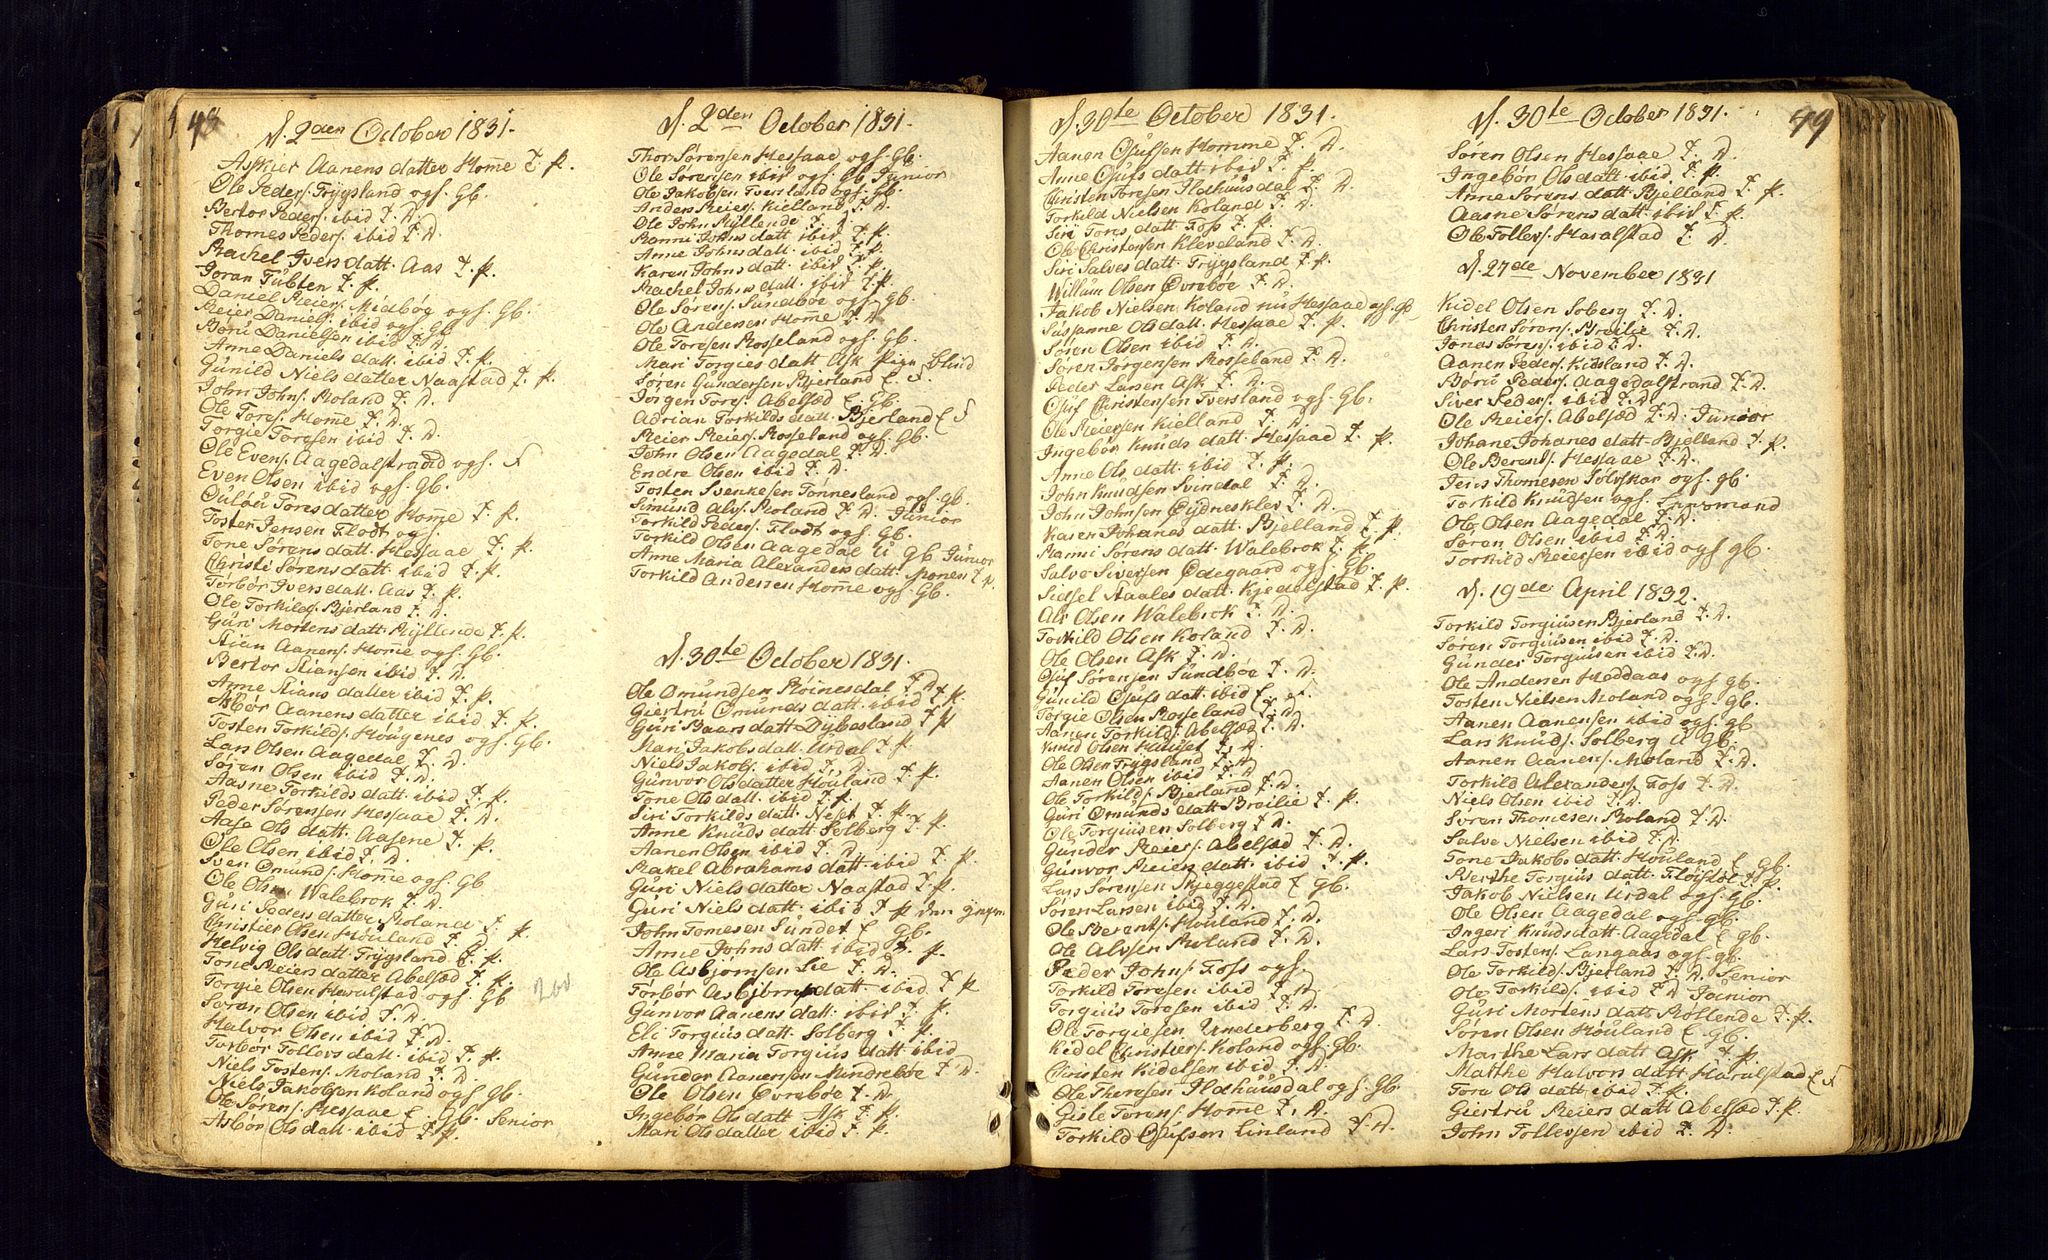 48
d. 2den October 1831.
Aanensdatter Homme T. P.
Ole Peders. Trygsland ogs. Gb.
Bertor Peders. ibid T. D.
Thomes Peders. ibid T. D.
Rachel Iversdatt. Aas T. P.
Joran Tubten T. P.
Daniel Reiers. Midbøg ogs. Gb.
Reier Daniels. ibid ogs. Gb
Borü Danielsen ibid T. D.
Anne Daniels datt. ibid T. P.
Gunild Niels datter Naastad T. P.
John Johns. Roland T. D.
Ole Tores. Home T. D.
Torgie Toresen ibid T. D.
Ole Evens. Aagedalstrand ogs.
Even Olsen ibid ogs. Gb.
Toresdatter Home T. P.
Tosten Jensen Flodt ogs.
Tone Sørens datt. Hessaae T. P.
Christi Sørens datt. ibid T. P.
Torbør Ivers datt. Aas T. P.
Ole Torkilds. Bjerland T. D.
Güri Mortens datt. Ryllende T. P.
Stian Aanens. Home ogs. Gb.
Bertor Stiansen ibid T. D.
Anne Stians datter ibid T. P.
Asbør Aanens datter ibid T. P.
Tosten Torkilds. Hougenes ogs. Gb.
Lars Olsen Aagedal T. D.
Søren Olsen ibid T. D.
Aasne Torkilds datt. ibid T. P.
Peder Sørensen Hessaae T. D.
Aase Ols datt. Aasene T. P.
Ole Olsen ibid T. D.
Sven Omünds. Home ogs. Gb
Ole Olsen Walebrok T. D.
Güri Peders datter Roland T. P.
Christier Olsen Houland T. D.
Helvig Ols datt. Trygsland T. P.
Tone Reiers datter Abelsæd T. P.
Torgie Olsen Haralstad ogs. Gb
Søren Olsen ibid T. D.
Halvor Olsen ibid T. D.
Torbør Tollevs datt. ibid T. P.
Niels Tostens. Moland T. D.
Niels Jakobsen Koland ogs Gb.
Ole Sørens. Hessaae Gb. Senior
Asbør Ols datt. ibid T. P.
d. 2den October 1831.
Thor Sørensen Hessaae ogs. Gb.
Ole Sørensen ibid ogs. Gb Junior
Ole Jakobsen Tversland ogs. Gb.
Anders Reiers. Kielland T. D.
Ole John Ryllende T. D
Ranni Johns datt ibid T. P.
Anne Johns datt. ibid T. P.
Karen Johns datt. ibid T. P.
Rachel Johns datt. ibid T. P
Ole Sørens. Sundbøe ogs. Gb.
Ole Andersen Home T. D
Ole Toresen Rosseland ogs. Gb.
Mari Torgies datt Ask Pige Blind
Søren Gundersen Bjerland
Jørgen Tores. Abelsæd Gb.
Adrian Torkilds datt. Bjerland
Reier Reiers. Rosseland ogs. Gb.
John Olsen Aagedal T. D.
Endre Olsen ibid T. D.
Tosten Svenkesen Tønnesland ogs. Gb.
Simund Alvs. Roland T. D. Junior
Torkild Peders. Flodt ogs. Gb.
Torkild Olsen Aagedal U Gb Junior
Anne Maria Alexanders datt. Mones T P
Torkild Andersen Home ogs. Gb.
d. 30te October 1831.
Ole Omundsen Røinesdal T. D.
Giertrü Omunds datt. ibid T. P.
Güri Baars datt. Dybesland T P
Mari Jakobs datt. Urdal T. P.
Niels Jakobs. ibid T. D.
Gunvor Ols datter Houland T. P.
Tone Ols datt. ibid T. P.
Siri Torkilds datt. Neset T. P.
Anne Knuds datt. Solberg T. P.
Aanen Olsen ibid T. D.
Rakel Abrahams datt. ibid T. P.
Güri Niels datter Naastad T. P.
Güri Niels datt. ibid T. P den yngre
John Tomesen Sundet Gb.
Anne Johns datt ibid T. P.
Ole Asbjørnsen Lie T. D.
Torbør Asbjørns datt. ibid T. P
Gunvor Aanens datt. ibid T. P.
Eli Torgius datt. Solberg T. P.
Anne Maria Torgius datt ibid
Gunder Aanensen Mindrebøe T. D.
Ole Olsen Øvrebøe T. D.
Ingebør Ols datt Ask T. P.
Mari Ols datter ibid T. P.
260
49
d. 30te October 1831.
Aanen Osufsen Homme T. D.
Anne Osufs datt ibid T. P.
Christen Toresen Ildhuusdal T. D.
Torkild Nielsen Koland T. D.
Siri Tores datt. Foss T. P.
Ole Christensen Kleveland T. D.
Siri Salves datt. Trygsland T. P.
Willum Olsen Øvrebøe T. D.
Jakob Nielsen Koland nu Hessaae ogs. Gb
Süsanne Ols datt. Hessaae T. P.
Søren Olsen ibid T. D.
Søren Jørgensen Rosseland T. D.
Peder Larsen Ask T. D.
Osuf Christensen Tversland ogs. Gb.
Ole Reiersen Kielland T. D.
Ingebør Knuds datt. Hessaae T. P.
Anne Ols datt. ibid T. P.
John Knudsen Svindal T. D.
John Johnsen Eidnesklev T. D.
Karen Johanes datt. Bjelland T. P.
Ranni Sørens datt. Walebrok T. P.
Salve Siversen Ødegaard ogs. Gb.
Sidsel Staales datt. Kjedelstad T. P.
Als Olsen Walebrok T. D.
Torkild Olsen Koland T. D.
Ole Olsen Ask T. D.
Osuf Sørensen Sundbøe T. D.
Gunild Osufs datt. ibid
Torgie Olsen Rosseland T. D.
Aanen Torkilds. Abelsæd T. D.
Knud Olsen T. D.
Ole Olsen Trygsland T. D.
Aanen Olsen ibid T. D
Ole Torkilds. Bjerland T. D.
Güri Omunds datt. Breilie T. P.
Ole Torgiusen Solberg T. D.
Gunder Reiers. Abelsæd T. D.
Gunvor Reiers datt. ibid T. P.
Lars Sørensen Skjeggestad Gb.
Søren Larsen ibid T. D.
Ole Berents. Houland T. D.
Ole Alvsen Roland T. D.
Peder Johns. Foss ogs.
Torkild Toresen ibid T. D.
Torgius Toresen ibid T. D.
Ole Torgiesen Underberg T. D.
Kidel Christiers. Koland ogs. Gb.
Christen Kidelsen ibid T. D.
Ole Theresen Ildhuusdal ogs. Gb.
Gisle Torens. Home T. D.
Torkild Osufson Linland T. D.
d. 30te October 1831.
Søren Olsen Hessaae T. D.
Ingebør Ols datt ibid T. P.
Anne Sørens datt. Bjelland T. P.
Aasne Sørens datt. ibid T. P.
Ole Tollevs. Haralstad T. D.
d. 27de November 1831
Kidel Olsen Soberg T. D.
Christen Sørens. Breilie T. D.
Jonas Sørens. ibid T. D.
Aanen Peders. Kidsland T. D.
Børü Peders. Aagedalstrand T. D.
Siver Peders. ibid T. D.
Ole Reiers. Abelsæd T. D. Junior
Johane Johanes datt. Bjelland T. P.
Ole Berens. Hessaae T. D.
Jens Thomesen Solvskar ogs. Gb.
Torkild Knudsen ogs. Lensmand
Ole Olsen Aagedal T. D.
Søren Olsen ibid T. D.
Torkild Reiersen ibid ogs Gb.
d. 19de April 1832.
Torkild Torgiusen Bjerland T. D.
Søren Torgiusen ibid T. D.
Gunder Torguisen ibid T. D.
Ole Andersen Heddaas ogs Gb.
Tosten Nielsen Moland ogs. Gb.
Aanen Aanensen ibid ogs. Gb
Lars Knuds. Solberg U Gb.
Aanen Aanens. Moland T. D.
Torkild Alexanders. Foss T. D.
Niels Olsen ibid T. D.
Søren Thomesen Roland T. D.
Salve Nielsen ibid T. D.
Tone Jakobs datt. Houland Gb.
Berthe Torgius datt. T. P.
Jakob Nielsen Urdal ogs. Gb.
Ole Olsen Aagedal ogs. Gb.
Ingeri Knuds datt Aagedal Gb.
Lars Tostens. Langaas ogs. Gb.
Ole Torkilds. Bjerland T. D. Senior
Ole Torkilds. ibid T D Junior
Güri Mortens datt. Røllende T. P.
Søren Olsen Houland Gb.
Marthe Lars datt. Ask T. P.
Mathe Halvors datt. Haralstad
Tora Ols datt. ibid T. P.
Giertrü Reiers datt Abelsæd T. P.
John Tollevsen ibid T. D.